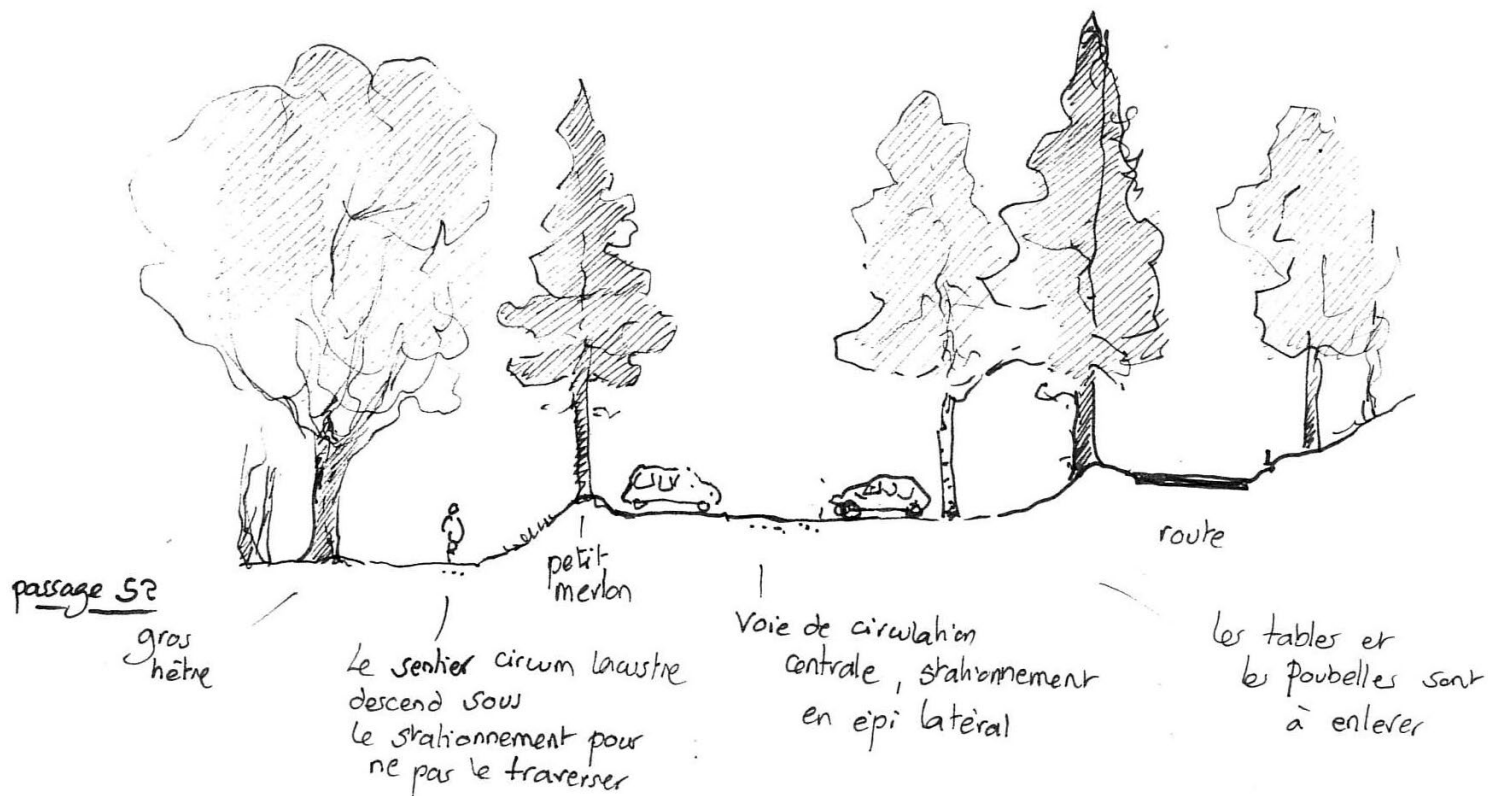 passage 52
gros
hêtre
Le sentier circum lacustre
descend sous
le stationnement pour
ne pas le traverser
petit
merlon
Voie de circulation
centrale, stationnement
en épi latéral
route
les tables et
les poubelles sont
à enlever